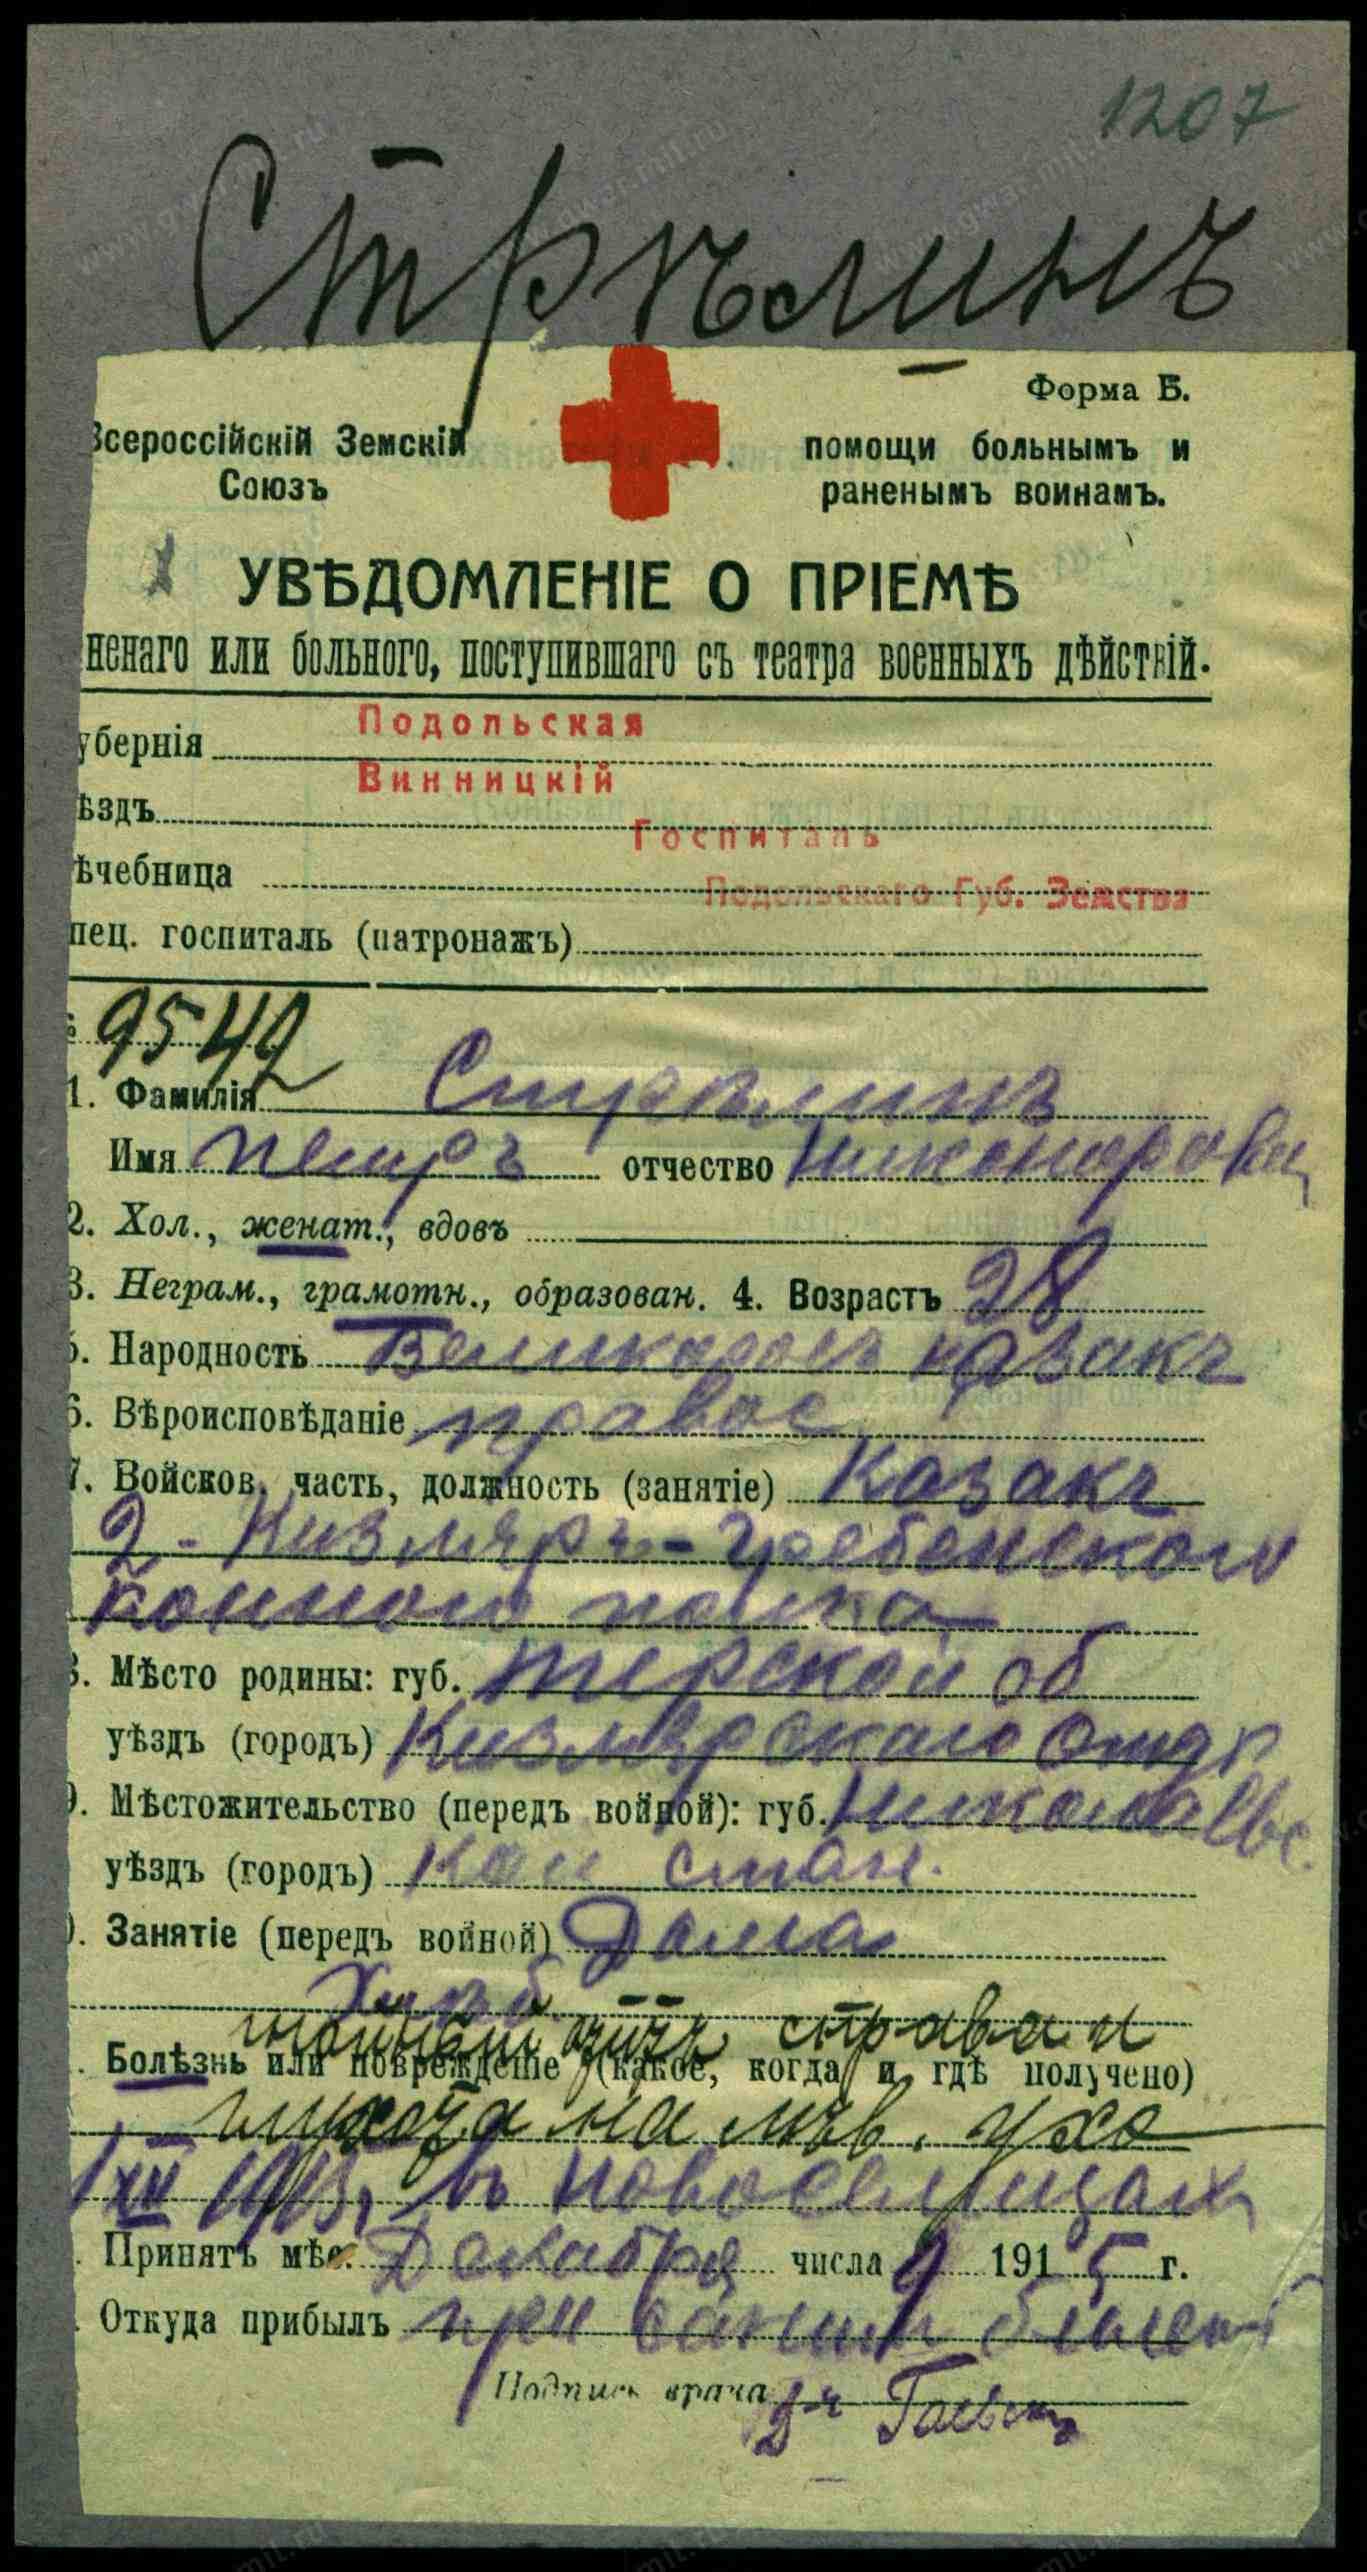 1207
Стрѣлинъ
Форма Б.
Всероссійскій Земскій
Союзъ
помощи больнымъ и
раненымъ воинамъ.
УВѢДОМЛЕНІЕ О ПРІЕМѢ
ненаго или больного, поступившаго съ театра военныхъ дѣйствій.
убернія Подольская
ѣздъ Винницкій
Госпиталь
ѣчебница Подольскаго Губ. Земства
пец. госпиталь (патронажъ)
9542
1. Фамилія Стрѣлинъ
Имя Петръ отчество Никонорович
2. Хол., женат., вдовъ
3. Неграм., грамотн., образован. 4. Возрастъ 28
5. Народность Великоросъ казакъ
6. Вѣроисповѣданіе правос
7. Войсков. часть, должность (занятіе) Казакъ
2-Кизляръ-Гребенского
конного полка
8. Мѣсто родины: губ. Терской об
уѣздъ (городъ) Кизлярскаго отд
9. Мѣстожительство (передъ войной): губ. Николаевс.
уѣздъ (городъ) кои стан.
). Занятіе (передъ войной) Дома
Хлѣб
. Болѣзнь или поврежденіе (какое, когда и гдѣ получено)
на лѣв. ухо
1 XII 1915, въ Новоселицахъ
. Принятъ мѣс. Декабря числа 9 1915 г.
. Откуда прибылъ при
Подпись врача